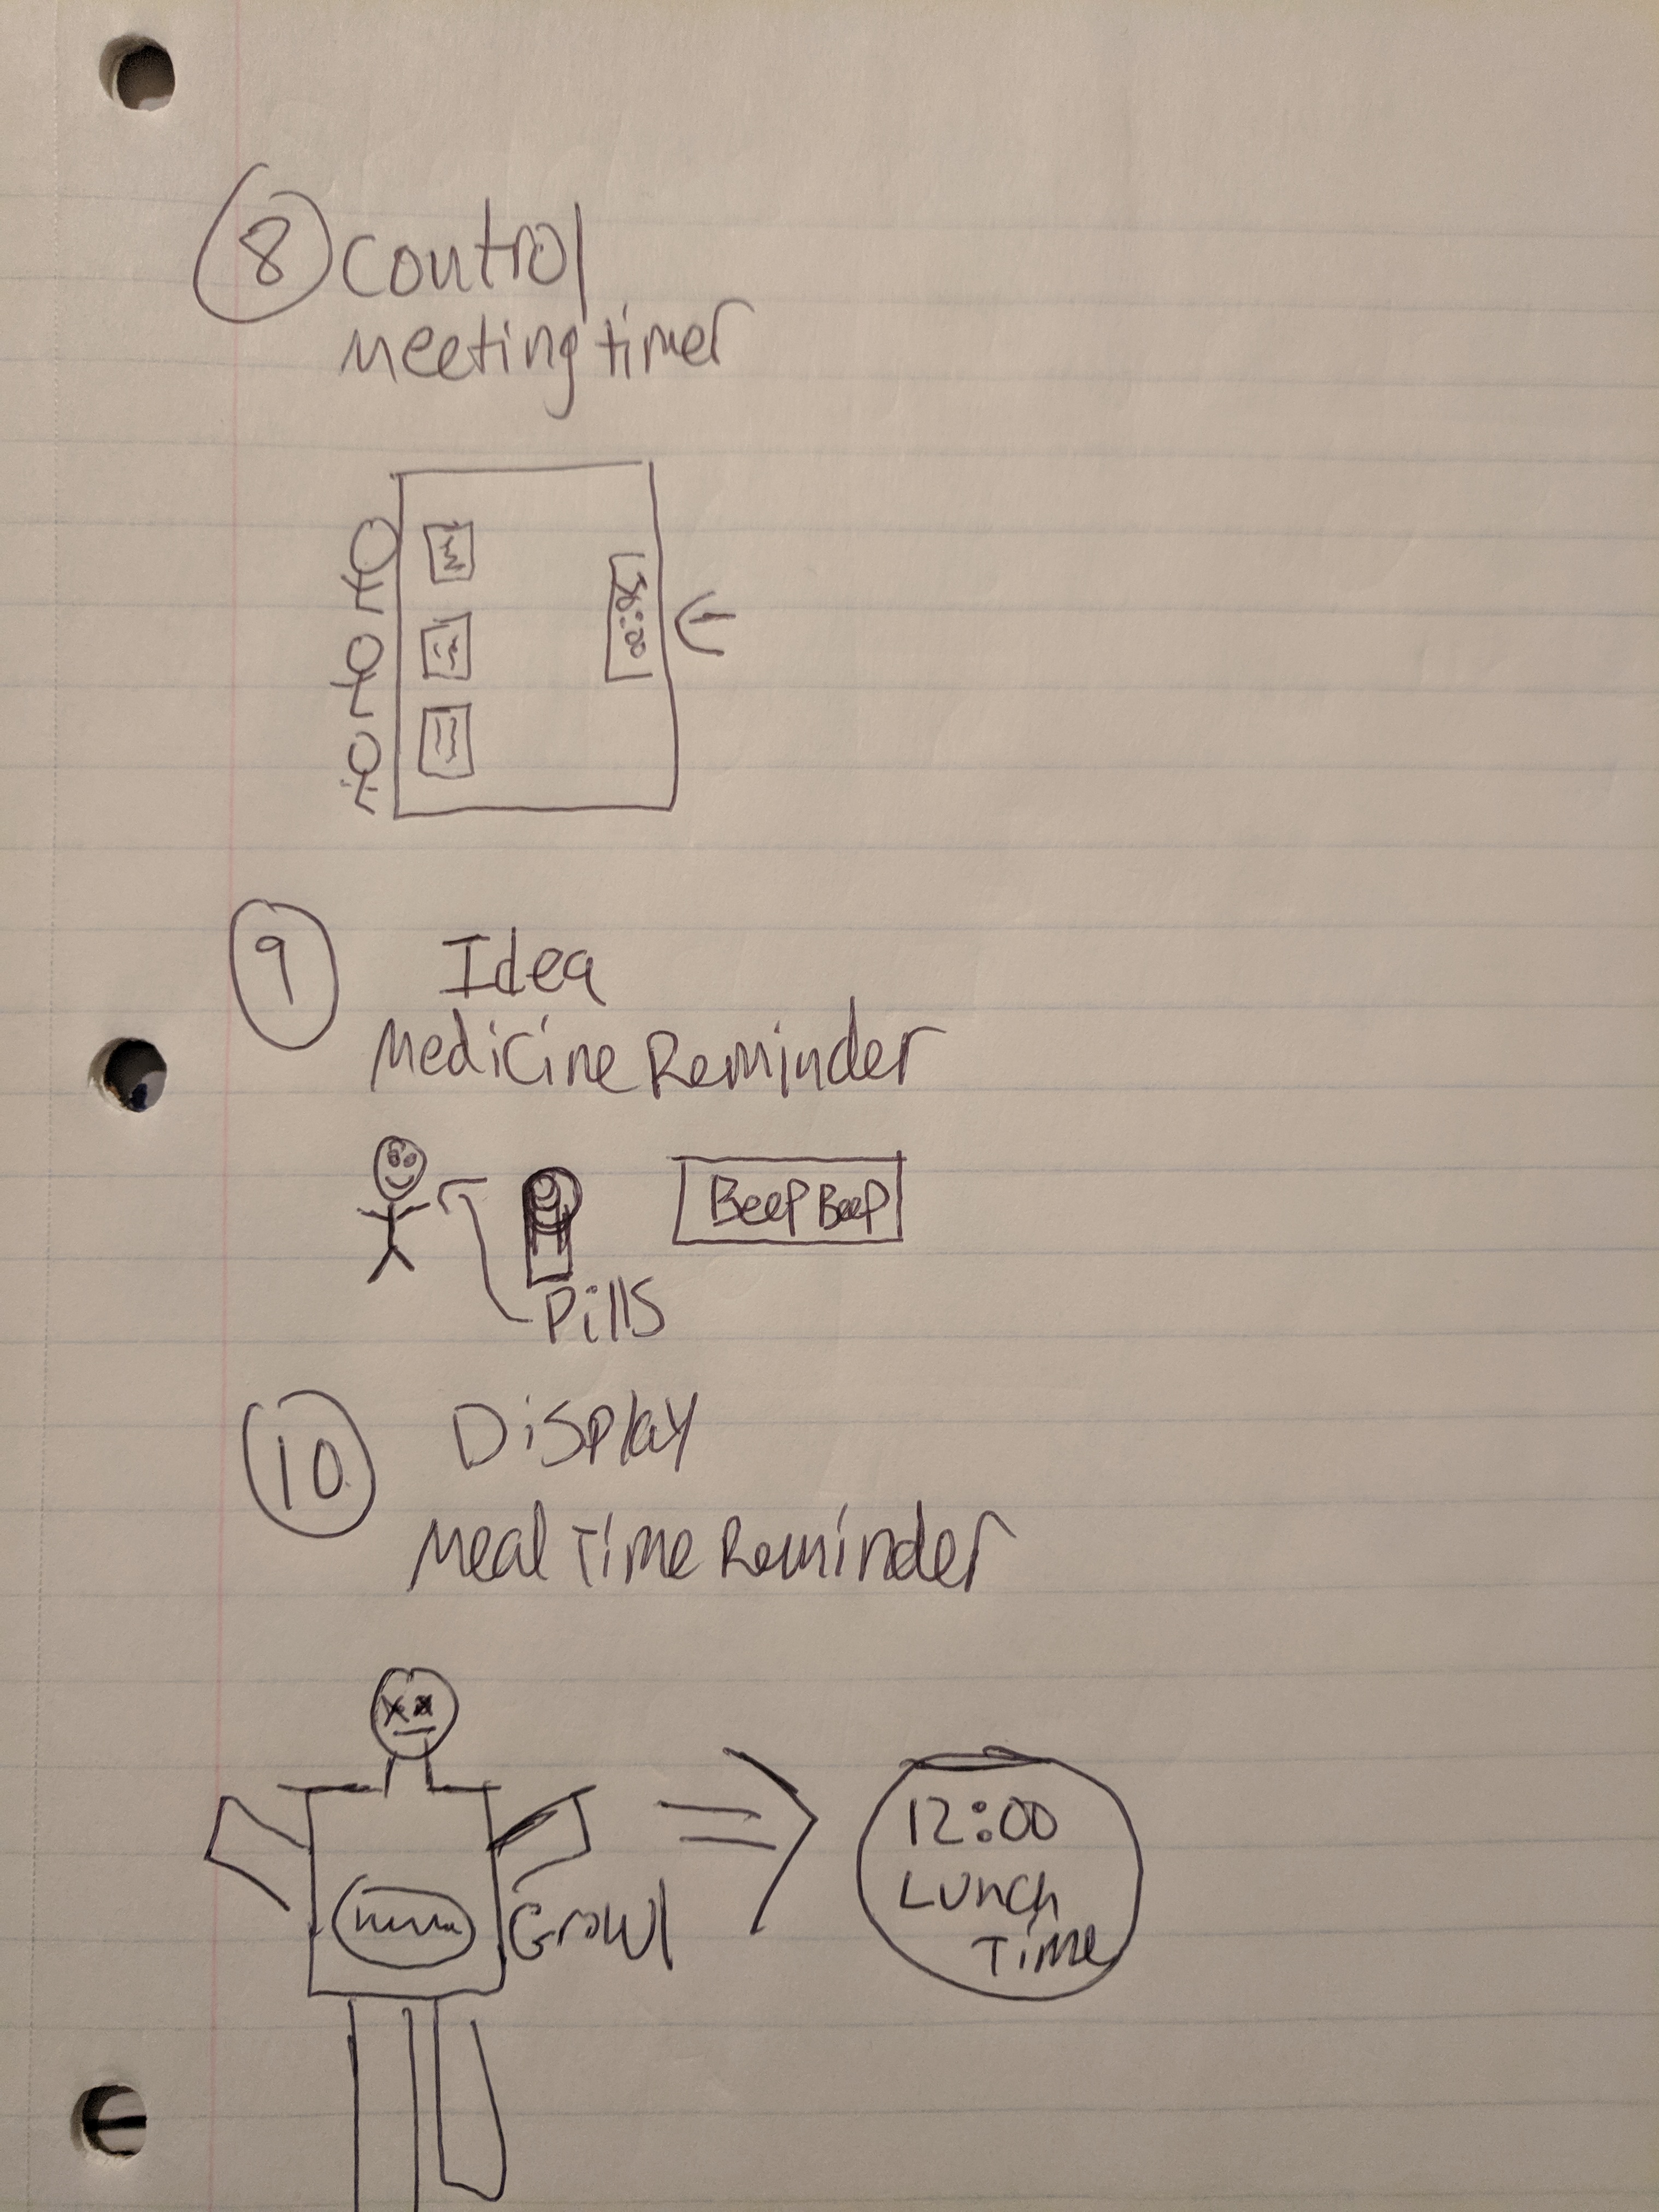 8 Control
Meeting timer
30:00
9 Idea
Medicine Reminder
Beep Beep
Pills
10 Display
Meal Time Reminder
Growl
12:00
Lunch
Time